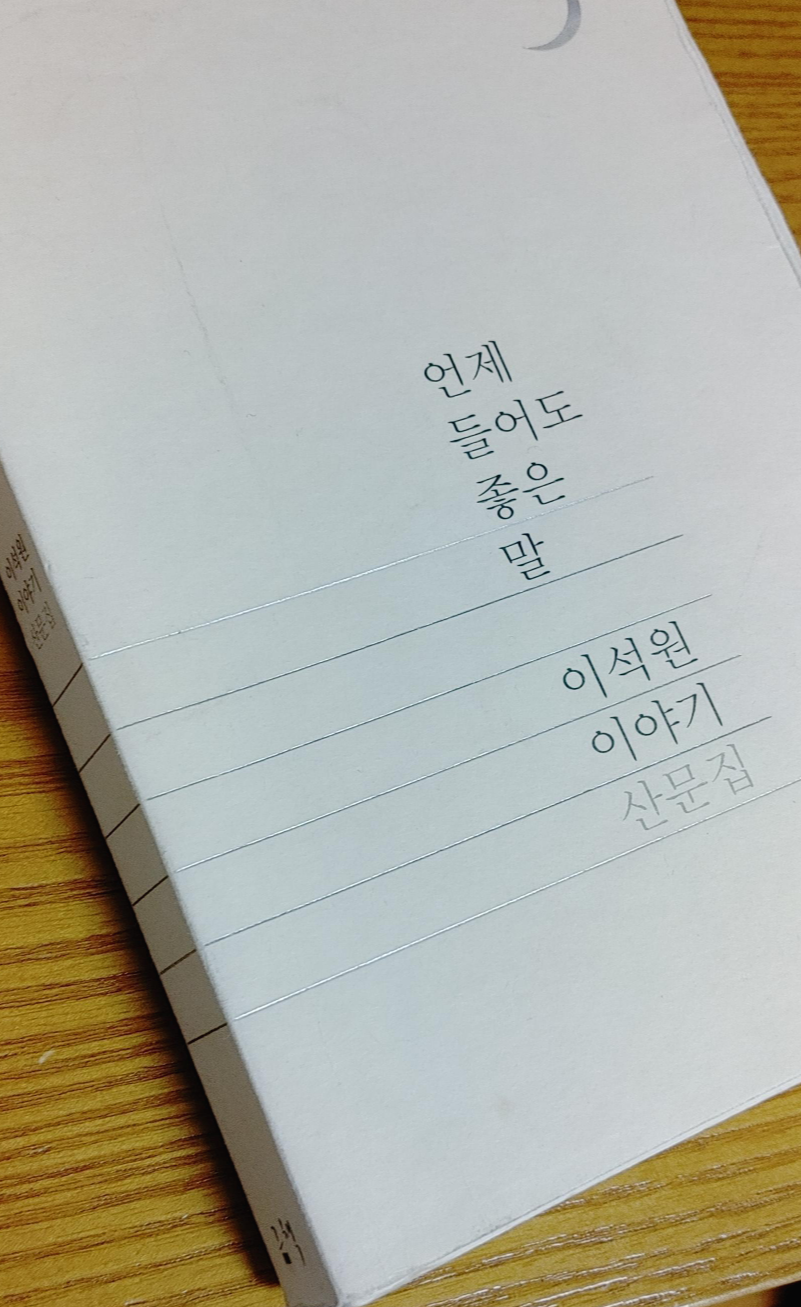 언제
들어도
좋은
말
이석원
이야기
산문집
이석원
이야기
산문집
그책